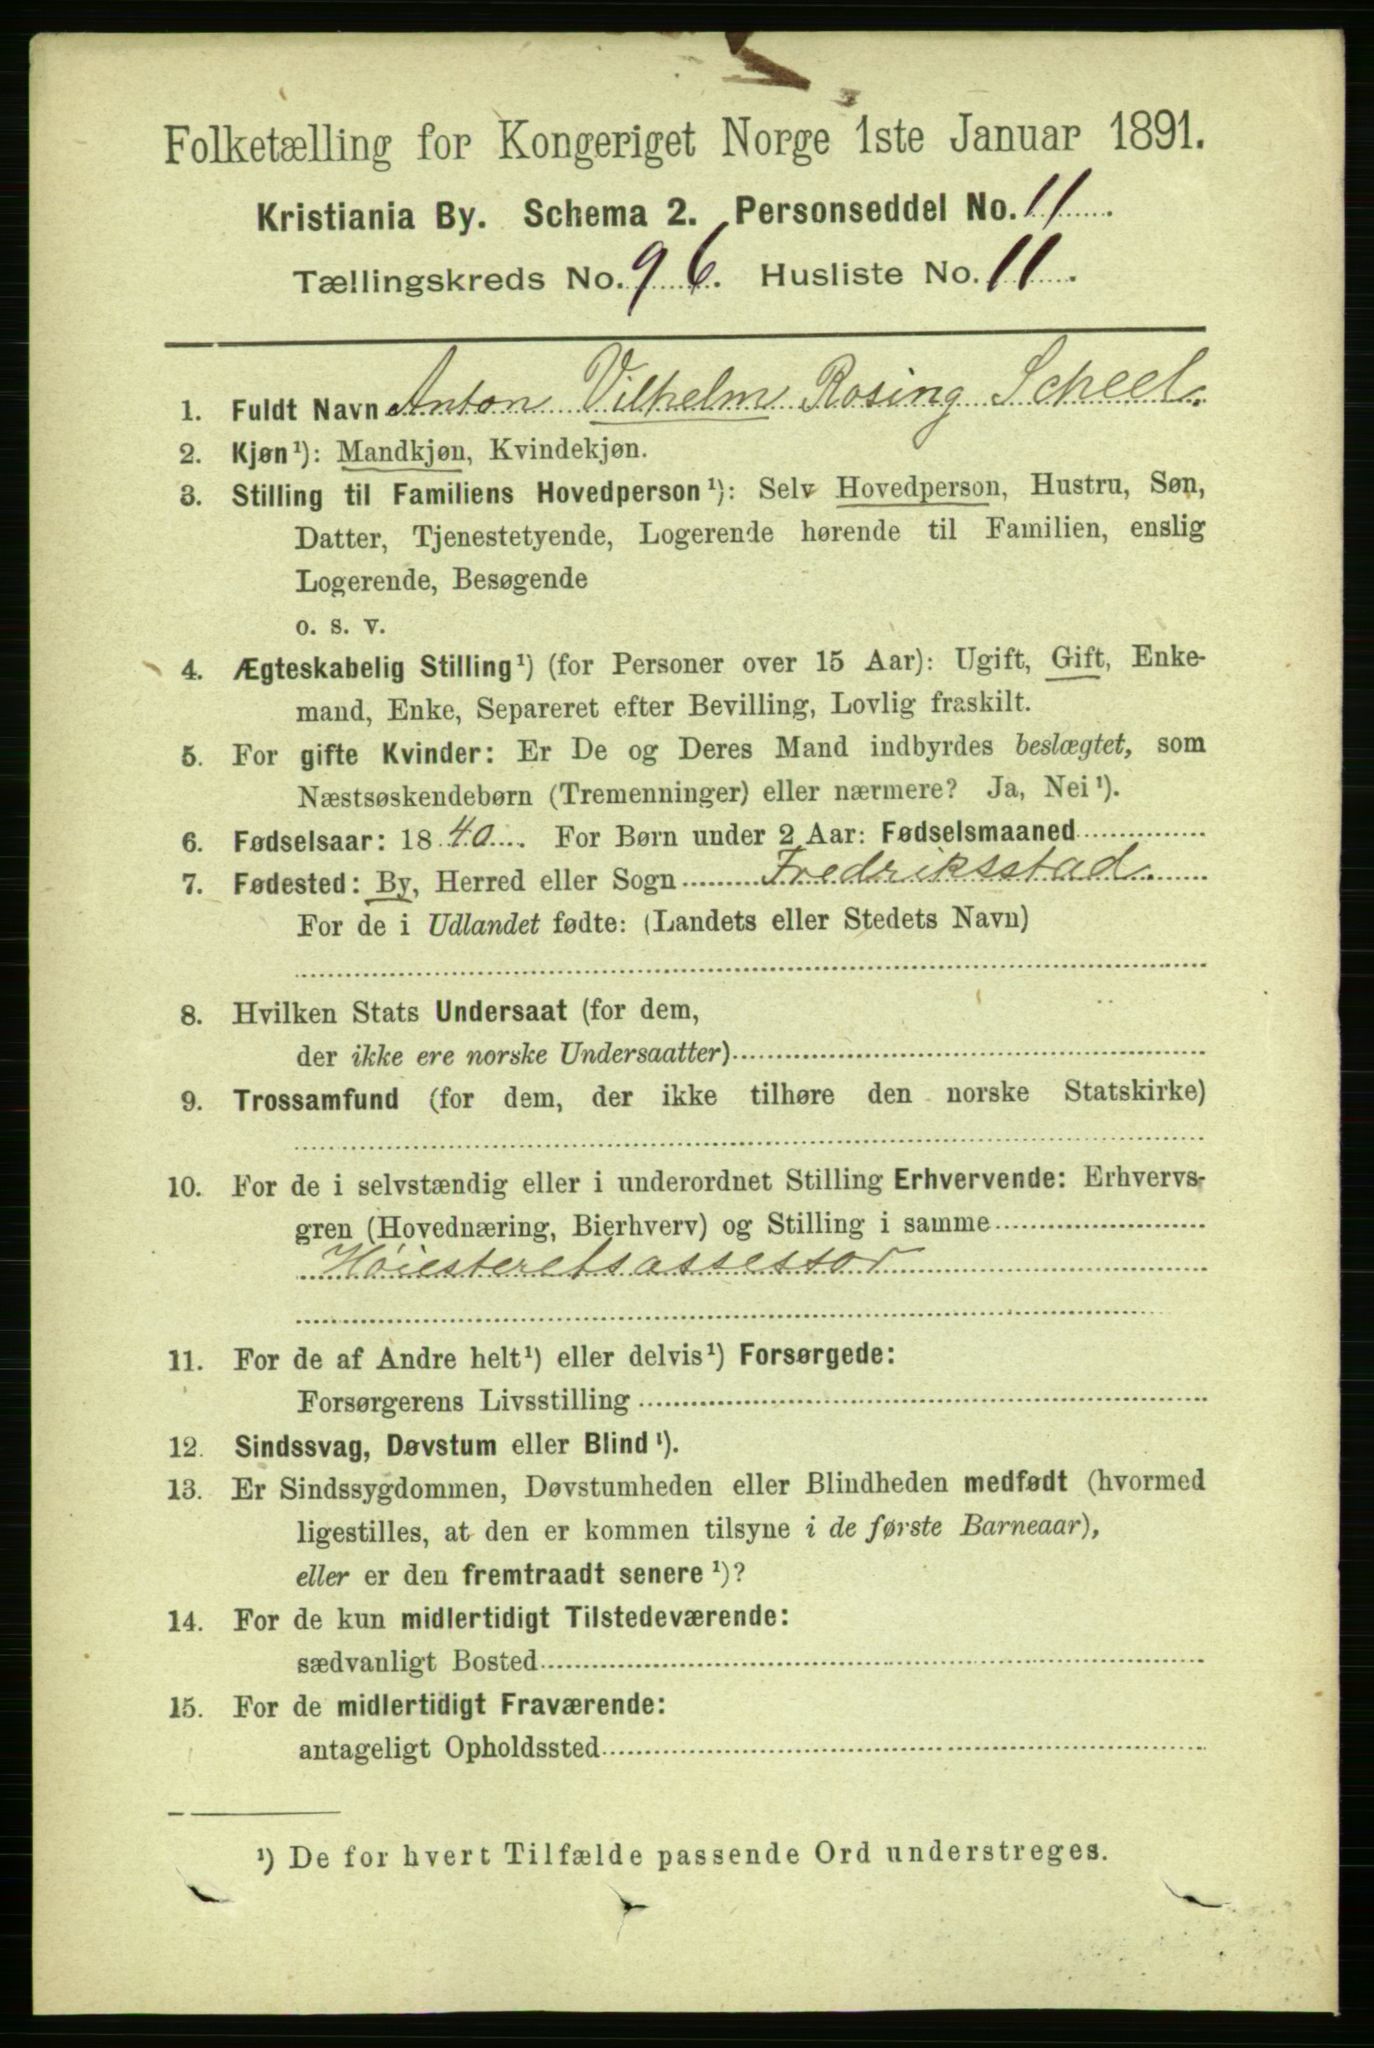 Folketælling for Kongeriget Norge 1ste Januar 1891.
Kristiania By. Schema 2. Personseddel No. 11
Tællingskreds No. 96. Husliste No. 11.
1. Fuldt Navn Anton Vilhelm Rosing Scheel.
2. Kjøn¹): Mandkjøn, Kvindekjøn.
3. Stilling til Familiens Hovedperson¹): Selv Hovedperson, Hustru, Søn,
Datter, Tjenestetyende, Logerende hørende til Familien, enslig
Logerende, Besøgende
o. s. v.
4. Ægteskabelig Stilling¹) (for Personer over 15 Aar): Ugift, Gift, Enke-
mand, Enke, Separeret efter Bevilling, Lovlig fraskilt.
5. For gifte Kvinder: Er De og Deres Mand indbyrdes beslægtet, som
Næstsøskendebørn (Tremenninger) eller nærmere? Ja, Nei¹).
6. Fødselsaar: 1840. For Børn under 2 Aar: Fødselsmaaned
7. Fødested: By, Herred eller Sogn Fredriksstad.
For de i Udlandet fødte: (Landets eller Stedets Navn)
8. Hvilken Stats Undersaat (for dem,
der ikke ere norske Undersaatter)
9. Trossamfund (for dem, der ikke tilhøre den norske Statskirke)
10. For de i selvstændig eller i underordnet Stilling Erhvervende: Erhvervs-
gren (Hovednæring, Bierhverv) og Stilling i samme
Høiesteretsassessor
11. For de af Andre helt¹) eller delvis¹) Forsørgede:
Forsørgerens Livsstilling
12. Sindssvag, Døvstum eller Blind¹).
13. Er Sindssygdommen, Døvstumheden eller Blindheden medfødt (hvormed
ligestilles, at den er kommen tilsyne i de første Barneaar),
eller er den fremtraadt senere¹)?
14. For de kun midlertidigt Tilstedeværende:
sædvanligt Bosted
15. For de midlertidigt Fraværende:
antageligt Opholdssted
¹) De for hvert Tilfælde passende Ord understreges.